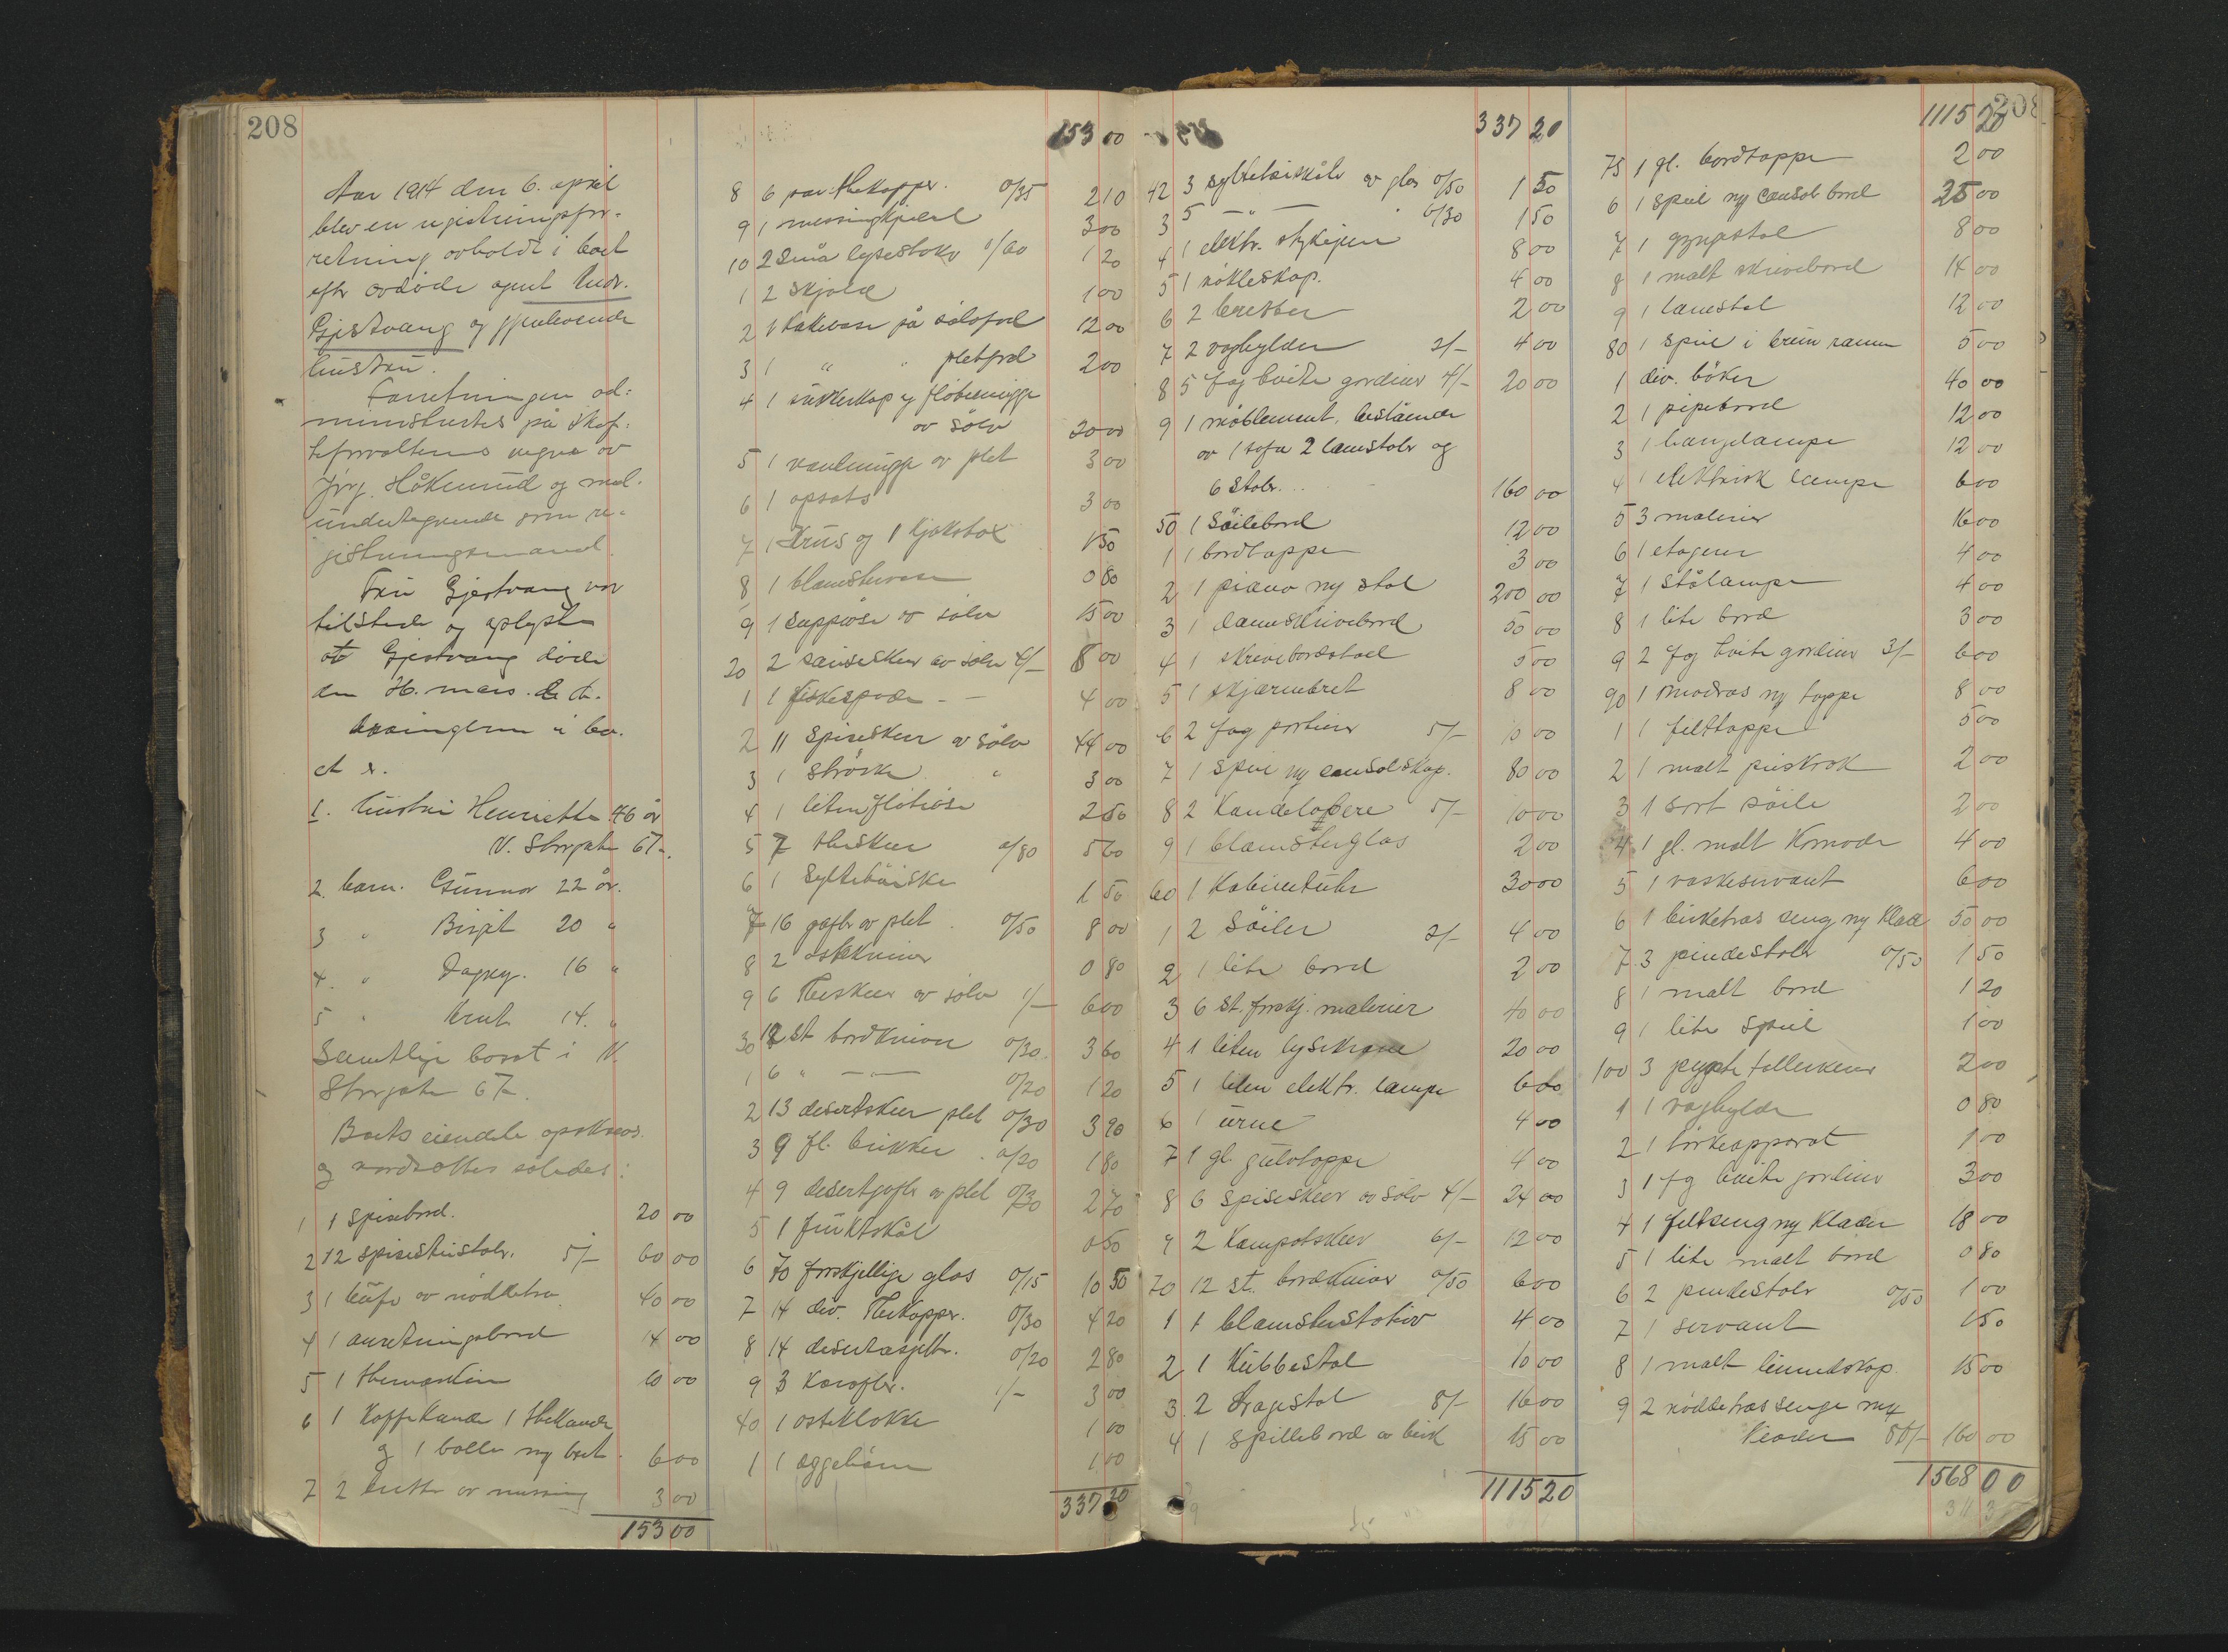 208
Aar 1914 den 6. april
blev en registreringsfor-
retning avholdt i boet
efter avdøde agent Andr.
Gjestvang og gjenlevende
hustru.
Forretningen ad-
ministrertes på skif-
teforvalterens vegne av
Jørg. Håkenrud og med
undertegnede som re-
gistreringsmand.
Fru Gjestvang var
tilstede og oplyste
at Gjestvang døde
den 16. mars d. å.
Arvingerne i bo-
et er.
1. Hustru Henriette 46 år
N. Storgate 67
2. barn. Gunnar 22 år.
3 " Birgit 20 "
4. " Dagny. 16 "
5 " Knut 14. "
Samtlige bosat i N.
Storgate 67
Boets eiendele opskreves
og verdsattes således:
1 1 spisebord. 20 00
2 12 spisestuestoler. 5/- 60 00
3 1 buffe av nøddetræ 40 00
4 1 anretningsbord 14 00
5 1 themaskin 10 00
6 1 Kaffekande 1 thekande
og 1 bolle m/ bret. 6 00
7 2 bretter av messing 3 00
153 00
153 00
8 6 par thekopper. 0/35 2 10
9 1 messingkjedel 3 00
10 2 små lysestaker 0/60 1 20
1 2 skjold 1 00
2 1 kakevase på sølvfod 12 00
3 1 " " pletfod 2 00
4 1 sukkerkop og fløtemugge
av sølv 20 00
5 1 vandmugge av plet 3 00
6 1 opsats 3 00
7 1 Krus og 1 kjeksbox 1 50
8 1 blomstervase 0 80
9 1 suppeøse av sølv 15 00
20 2 sauseskeer av sølv 4/- 8 00
1 1 fiskespade - 4 00
2 11 spiseskeer av sølv 44 00
3 1 strøske " 3 00
4 1 liten fløteøse 2 50
5 7 theskeer 0/80 5 60
6 1 syltetøiske 1 50
7 16 gafler av plet 0/50 8 00
8 2 ostekniver 0 80
9 6 Theskeer av sølv 1/- 6 00
30 12 st bordkniver 0/30 3 60
1 6 " — " — 0/20 1 20
2 13 desertskeer plet 0/30 3 90
3 9 fl. brikker 0/20 1 80
4 9 desertgafler av plet 0/30 2 70
5 1 fruktskål 0 50
6 70 forskjellige glas 0/15 10 50
7 14 div. Thekopper. 0/30 4 20
8 14 desertasjetter. 0/20 2 80
9 3 karafler. 1/- 3 00
40 1 osteklokke 1 00
1 1 æggehøne 1 00
337 20
337 20
42 3 syltetøiskåler av glas 0/50 1 50
3 5 - " - 0/30 1 50
4 1 elektr. strykejern 8 00
5 1 nøkleskap. 4 00
6 2 bretter 2 00
7 2 væghylder 2/- 4 00
8 5 fag hvite gardiner 4/- 20 00
9 1 møblement, bestående
av 1 sofa 2 lænestoler og
6 stoler. 160 00
50 1 Søilebord 12 00
1 1 bordtæppe 3 00
2 1 piano m/ stol 200 00
3 1 dameskrivebord 50 00
4 1 skrivebordstol 5 00
5 1 skjærmbret 8 00
6 2 fag portierer 5/- 10 00
7 1 speil m/ consolskap. 80 00
8 2 Kandelabere 5/- 10 00
9 1 blomsterglas 2 00
60 1 Kabinetuhr 30 00
1 2 Søiler 2/- 4 00
2 1 lite bord 2 00
3 6 st. forskj. malerier 40 00
4 1 liten lysekrone 20 00
5 1 liten elektr. lampe 6 00
6 1 urne 4 00
7 1 gl. gulvtæppe 4 00
8 6 spiseskeer av sølv 4/- 24 00
9 2 Kompotskeer 6/- 12 00
70 12 st. bordkniver 0/50 6 00
1 1 blomsterstativ 4 00
2 1 Kubbestol 10 00
3 2 Dragestol 8/- 16 00
4 1 spillebord av birk 15 00
1115 20
208
1115 20
75 1 gl. bordtæppe 2 00
6 1 speil m/ consolbord 25 00
7 1 gyngestol 8 00
8 1 malt skrivebord 14 00
9 1 lænestol 12 00
80 1 speil i brun ramme 5 00
1 div. bøker 40 00
2 1 pipebord 12 00
3 1 hængelampe 12 00
4 1 elektrisk lampe 6 00
5 3 malerier 16 00
6 1 etagere 4 00
7 1 ståлampe 4 00
8 1 lite bord 3 00
9 2 fag hvite gardiner 3/- 6 00
90 1 madras m/ tæppe 8 00
1 1 filttæppe 5 00
2 1 malt puskrok 2 00
3 1 sort søile 2 00
4 1 gl. malt Komode 4 00
5 1 vaskeservant 6 00
6 1 birketræs seng m/ klær 50 00
7 3 pindestoler 0/50 1 50
8 1 malt bord 1 20
9 1 lite speil 1 00
100 3 pyntetallerkener 2 00
1 1 væghylde 0 80
2 1 tørkeapparat 1 00
3 1 fg hvite gardiner 3 00
4 1 feltseng m/ klæder 18 00
5 1 lite malt bord 0 80
6 2 pindestoler 0/50 1 00
7 1 servant 1 50
8 1 malt linnedskap 15 00
9 2 nøddetræs senge m/
klæder 80/- 160 00
1568 00